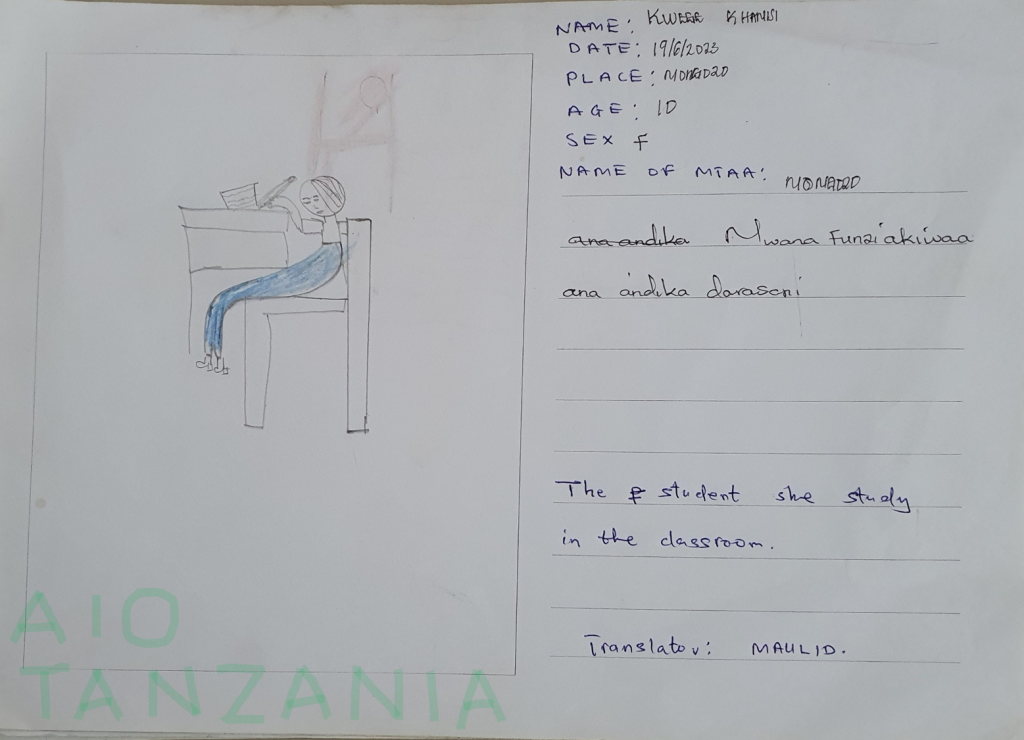 NAME: KWEGE KHAMISI
DATE: 19/6/2023
PLACE:
AGE: 10
SEX F
NAME OF MTAA:
ana andika Mwana Funzi akiwaa
ana andika darasani
The student she study
in the classroom.
Translator: MAULID.
AIO
TANZANIA